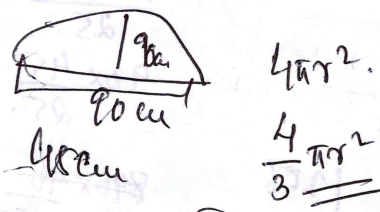 90cm
90cm
45cm
4πr².
4/3 πr²